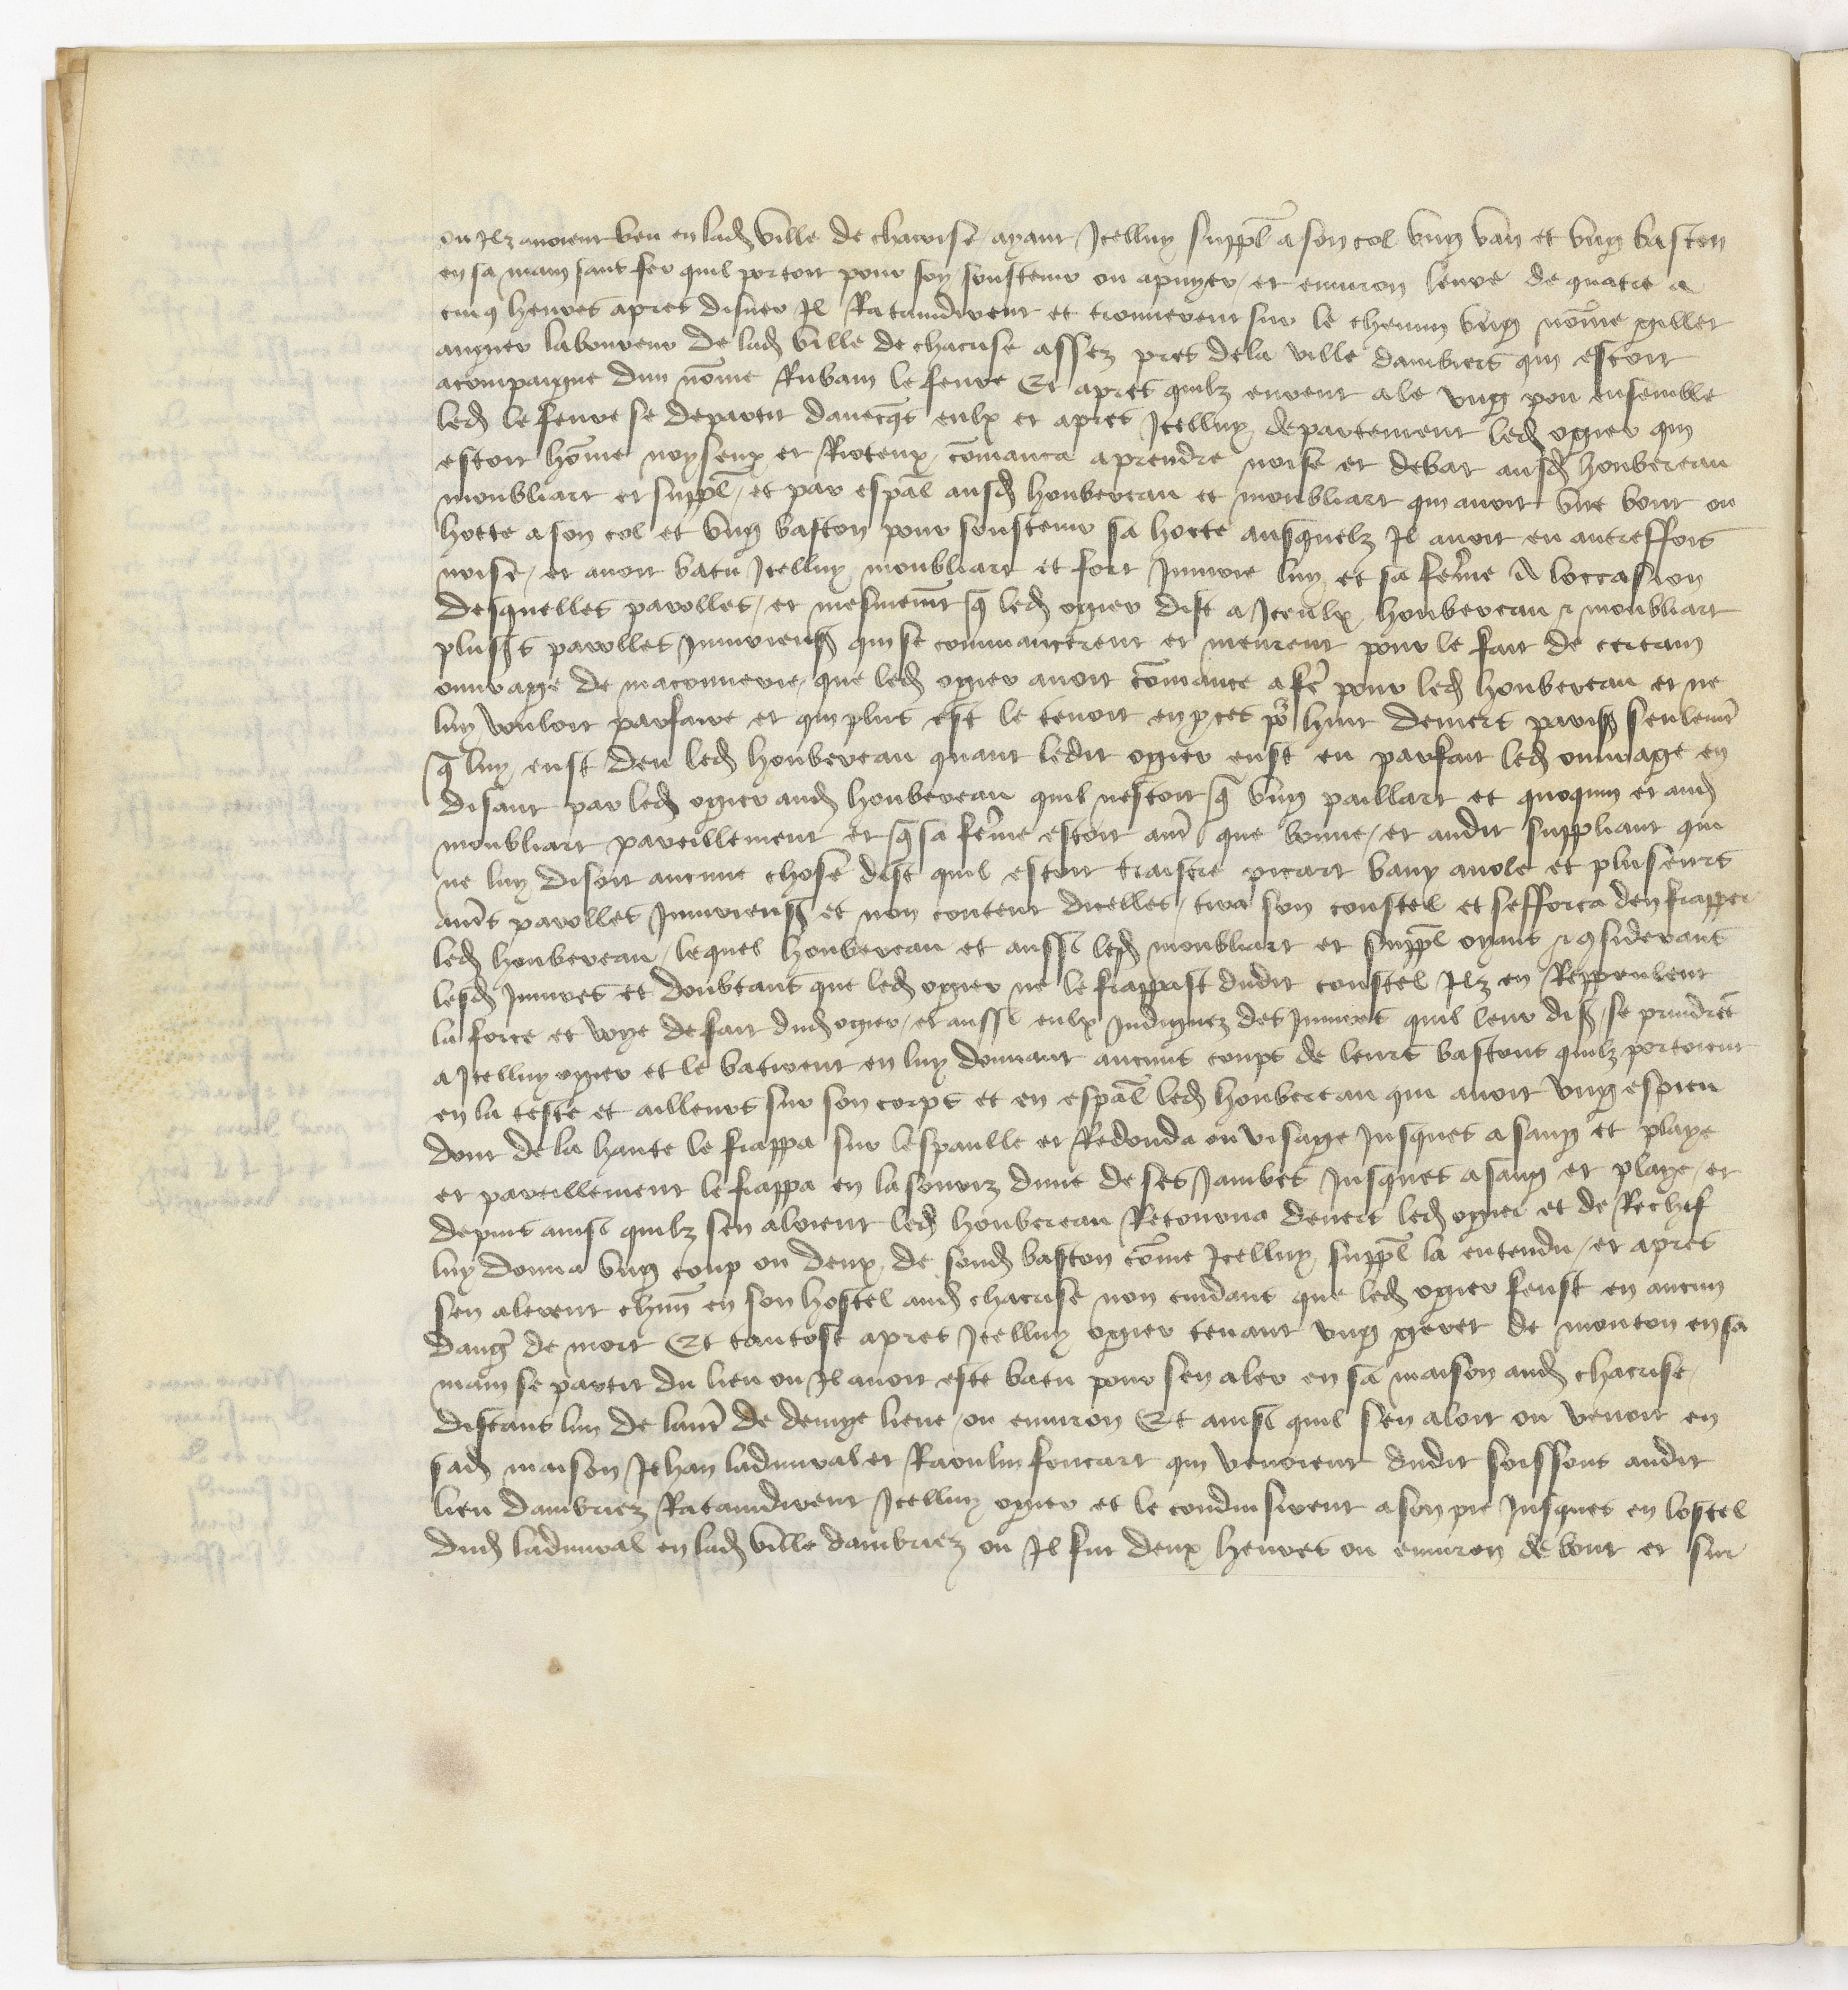 ou Ilz auoient veu en lad ville de chacrise / ayant Icelluy suppl a son col vng van et vng baston
en sa main sans fer quil portoit pour soy soustenir ou apuyer / et enuiron leure de quatre a
cinq heures apres disner Il Rataindirent et trouuerent sur le chemin vng nome gillet
ogier laboureur de lad ville de chacrise assez pres dela ville dambrers qui estoit
acompaigne dun nome le feure Et apres quilz eurent ale vng pou ensemble
led le feure se departit dauecqs eulx et apres Icelluy departement led ogier qui
estoit home noyseux et Rioteux comanca a prendre noise et debat ausd houbereau
moubliart et suppl / et par espal ausd houbereau et moubliart qui auoit vne bout ou
hotte a son col et vng baston pour soustenir sa hotte ausquelz Il auoit eu autreffois
noise / et auoit batu Icelluy moubliart et fort Iniurie luy et sa feme A loccasion
desquelles parolles / et mesmemt q led ogier dist a Iceulx houbereau et moubliart
plus parolles Iniurieus qui se commancerent et meurent pour le fait de certain
ouurage de maconnerie / que led ogier auoit comance a fe pour led houbereau et ne
luy vouloit parfaire et qui plus est le tenoit en pces po huit deniers paris seulemt
q luy eust deu led houbereau quant ledit ogier eust eu parfait led ouurage en
disant par led ogier aud houbereau quil nestoit q vng paillart et quoquin et aud
moubliart pareillement et q sa feme estoit aut que bonne / et audit suppliant qui
ne luy disoit aucune chose dist quil estoit traistre picart bany auole et pluseurs
auts parolles Iniurieus et non content dicelles / tira son coustel et sefforca den frapper
led houbereau / lequel houbereau et aussi led moubliart et suppl oyans et gsiderant
lesd Iniures et doubtans que led ogier ne le frappast dudit coustel Ilz en Reppeulent
la force et voye de fait dud ogier / et aussi eulx Indignez des Iniures quil leur dis / se prindret
a Icelluy ogier et le batirent en luy donnant aucuns coups de leurs bastons quilz portoient
en la teste et ailleurs sur son corps et en espal led houbereau qui auoit vng espieu
dont de la hante le frappa sur lespaulle et Redonda ou visage Jusques a sang et playe
et pareillement le frappa en la souriz dune de ses Jambes Jusques a sang et playe / et
depuis ainsi quilz sen aloient led houbereau Retourna deuers led ogier et de Rechef
luy donna vng coup ou deux de sond baston come Icelluy suppl la entendu / et apres
sen alerent chun en son hostel aud chacrise non cuidans que led ogier feust en aucun
dang de mort Et tantost apres Icelluy ogier tenant vng geret de mouton en sa
main se partit du lieu ou Il auoit este batu pour sen aler en sa maison aud chacrise /
distans lun de laut de demye lieue / ou enuiron Et ainsi quil sen aloit ou venoit en
sad maison Jehan laduural et Raoulin foucart qui venoient dudit soissons audit
lieu dambriez Rataindirent Icelluy ogier et le conduisirent a son pie Jusques en lostel
dud laduural en lad ville dambriez ou Il fut deux heures ou enuiron de bout et sur